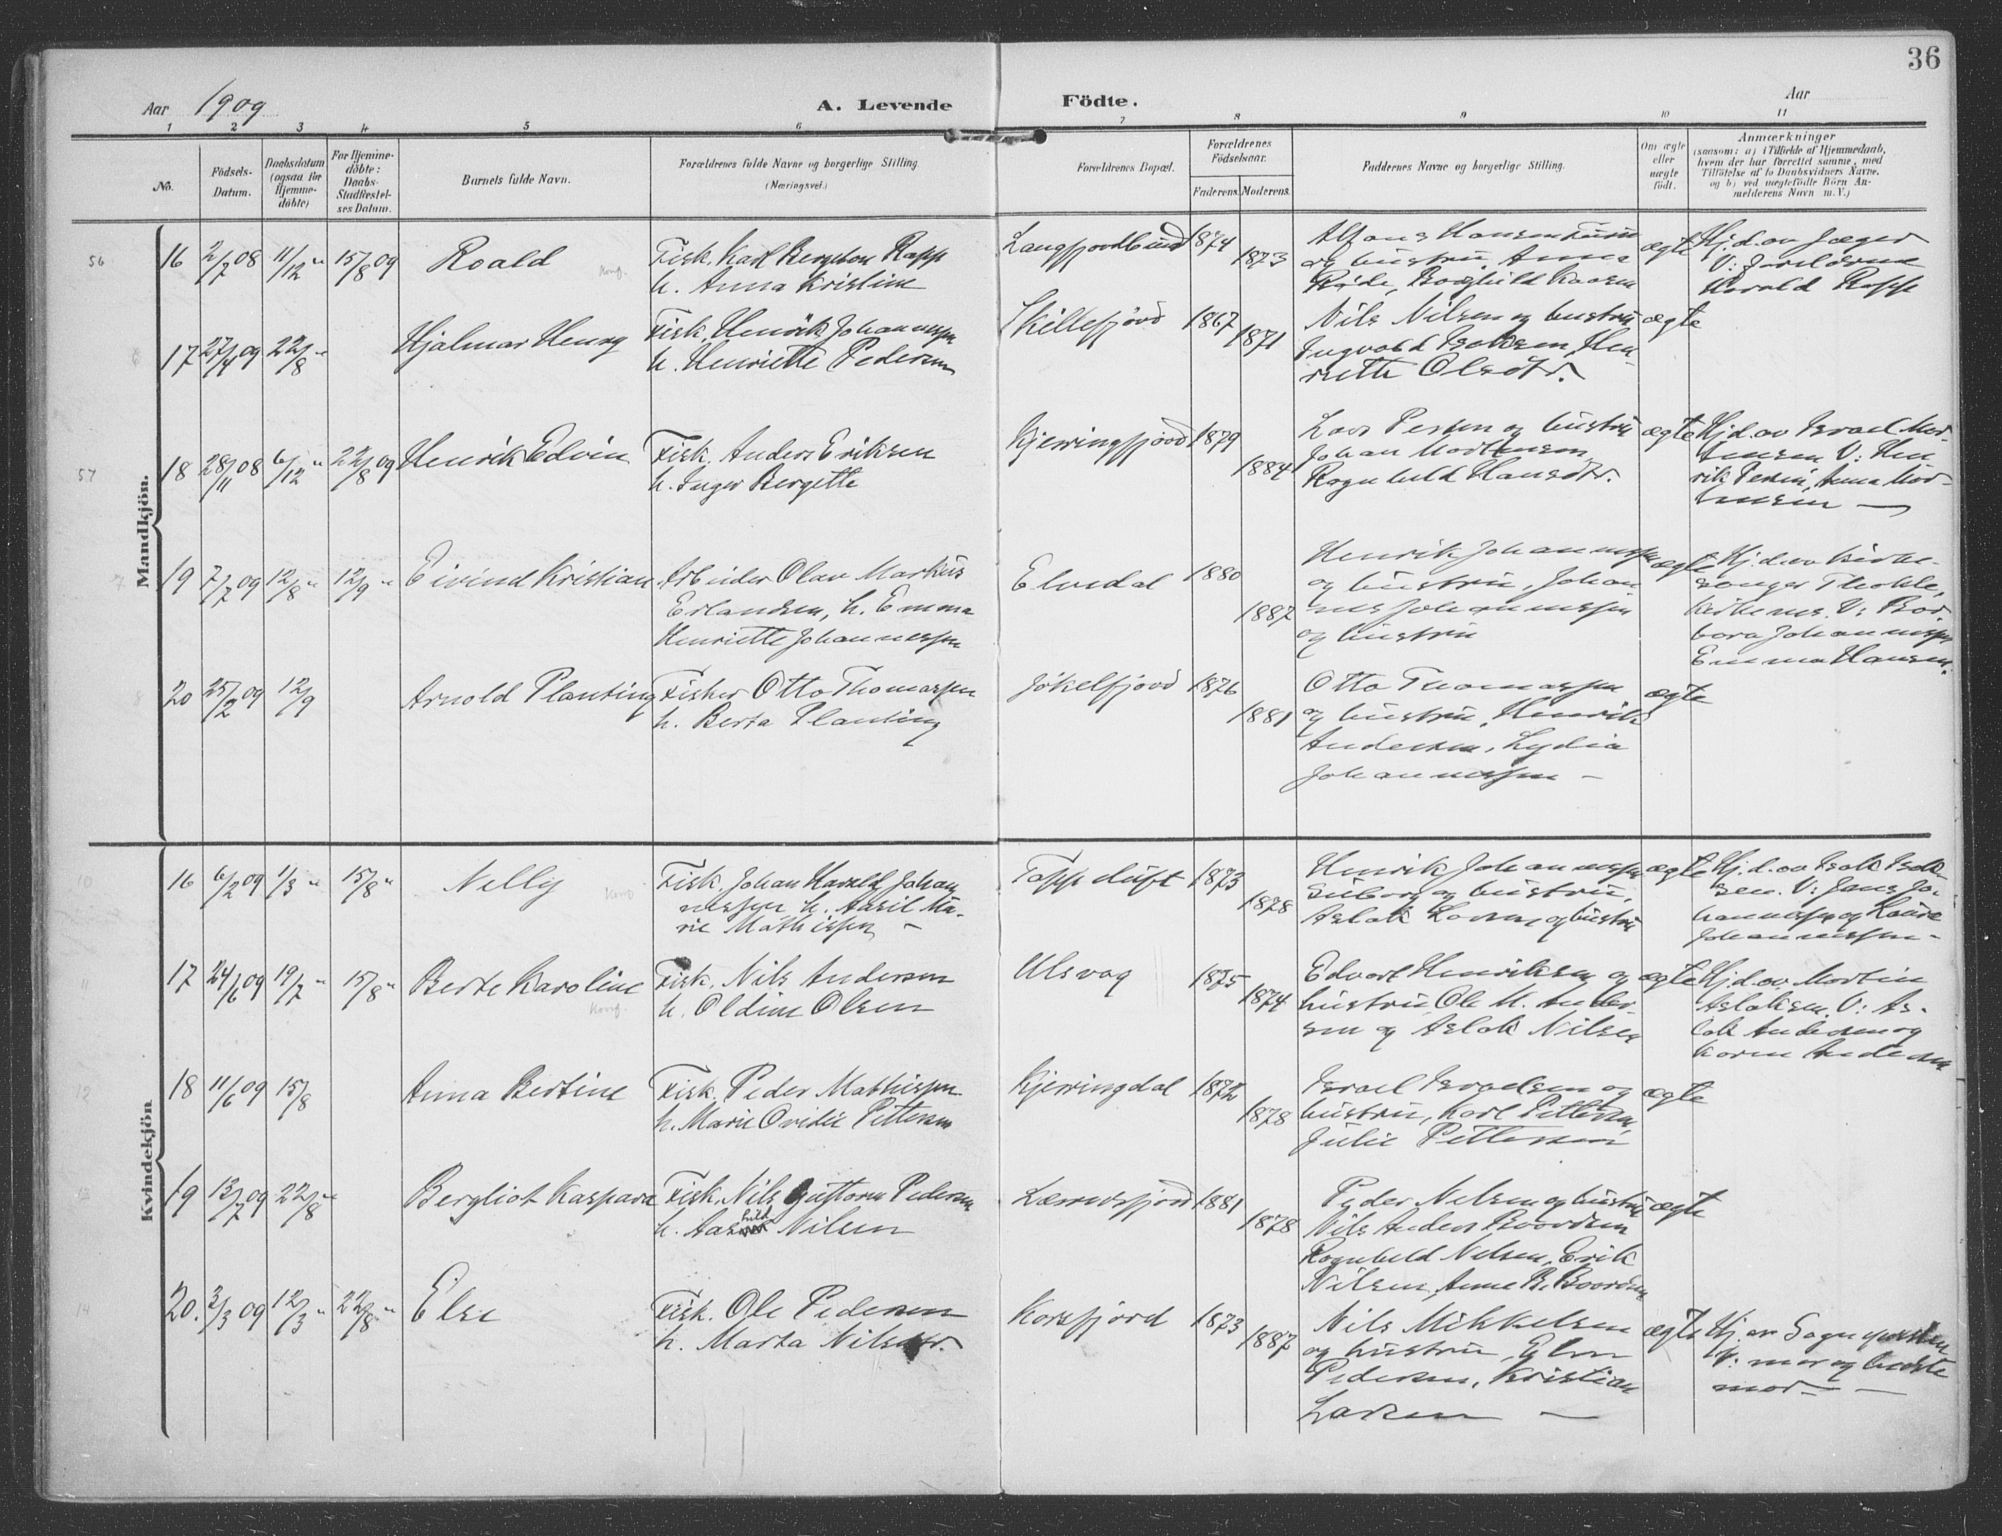 36
Aar 1909
A. Levende
Födte.
Aar
1 2 3 4 5 6 7 8 9 10 11
No.
Födsels-
Datum.
Daabsdatum
(ogsaa for
Hjemme-
döbte)
For Hjemme-
döbte:
Daabs-
Stadfæstel-
ses Datum.
Barnets fulde Navn.
Forældrenes fulde Navne og borgerlige Stilling.
(Næringsvei.)
Forældrenes Bopæl.
Forældrenes
Födselsaar.
Faderens.
Moderens.
Faddernes Navne og borgerlige Stilling.
Om ægte
eller
uægte
födt.
Anmærkninger
(saasom: a) i Tilfælde af Hjemmedaab,
hvem der har forrettet samme, med
Tilföielse af to Daabsvidners Navne.
og b) ved uægtefödte Börn An-
melderens Navn m. V.)
Mandkjön.
56
16 2/7 08 11/12 " 15/8 09
Roald
Fisk. Karl Bergeton Rapp
h. Anna Kristine
Langfjordbund 1874
1873
Alfons Hansen
og hustru, Anna
Borghild
ægte
Hj. d. av Jæger
V: forældrene
Harald Rapp
17 27/4 09 22/8 "
Hjalmar Henry
Fisk. Henrik Johannessen
h. Henriette Pedersen
Skillefjord 1867
1871
Nils Nilsen og hustru
Ingvald Isaksen, Hen-
riette Olsdtr.
ægte
57
18 28/11 08 6/12 " 22/8 09
Henrik Edvin
Fisk. Anders Eriksen
h. Inger Bergette
Kjerringfjord 1879
1884
Lars Persen og hustru
Johan Mortensen
Ragnhild Hansdtr.
ægte
Hj. d. av Israel Mor-
tensen V: Hen
rik Persen, Anna Mor-
tensen —
19 7/7 09 12/8 " 12/9 "
Eivind Kristian
Arbeider Olav Markus
Erlandsen, h. Emma
Henriette Johannessen
Elvedal 1880
1887
Henrik Johannessen
og hustru, Johan
nes Johannessen
og hustru
ægte
Hj. d. av Kirke-
sanger
V: Bar-
bara Johannessen
Emma Hansen.
20 25/2 09 12/9
Arnold Planting
Fisker Otto Thomassen
h. Berta Planting
Jökelfjord 1876
1881
Otto Thomassen
og hustru, Henrik
Andersen, Lydia
Johannessen —
ægte
Kvindekjön.
10
16 6/2 09 1/3 " 15/8 "
Nelly
Fisk. Johan Harald Johan
nessen h. Aasil Ma-
rie Mathissen —
Tappeluft 1873
1878
Henrik Johannessen
og hustru,
Aslak Larsen og hustru
ægte
Hj. d. av Isak Isak-
sen. V: Jens Jo-
hannessen og
Johannessen-
11
17 24/6 09 19/7 " 15/8 "
Berte Karoline
Konf.
Fisk. Nils Andersen
h. Oldine Olsen
Ulsvag 1875
1874
Edvart Henriksen og
hustru, Ole M. Ander-
sen og Aslak Nilsen
ægte
Hj. d. av Martin
Aslaksen. V: As-
lak Andersen og
Karen Andersen
12
18 11/6 09 15/8
Anna Bertine
Fisk. Peder Mathissen
h. Marie Ovidie Pettersen
Kjerringdal 1872
1878
Israel Israelsen og
hustru, Karl Pettersen
Julie Pettersen
ægte
13
19 13/7 09 22/8 "
Bergliot Kaspara
Fisk. Nils Gustav Pedersen
h. Aashild Nilsen
1881
1878
Peder Nilsen og hustru
Nils Anders
Ragnhild Nilsen, Erik
Nilsen, Anne B.
ægte
14
20. 3/3 09 12/3 " 22/8 "
Else
Fisk. Ole Pedersen
h. Marta Nilsdtr.
Korsfjord 1873
1887
Nils Mikkelsen
og hustru, Elen
Pedersen, Kristian
Larsen —
ægte
Hj. av Sognepresten
V: mor og bedste
mor —